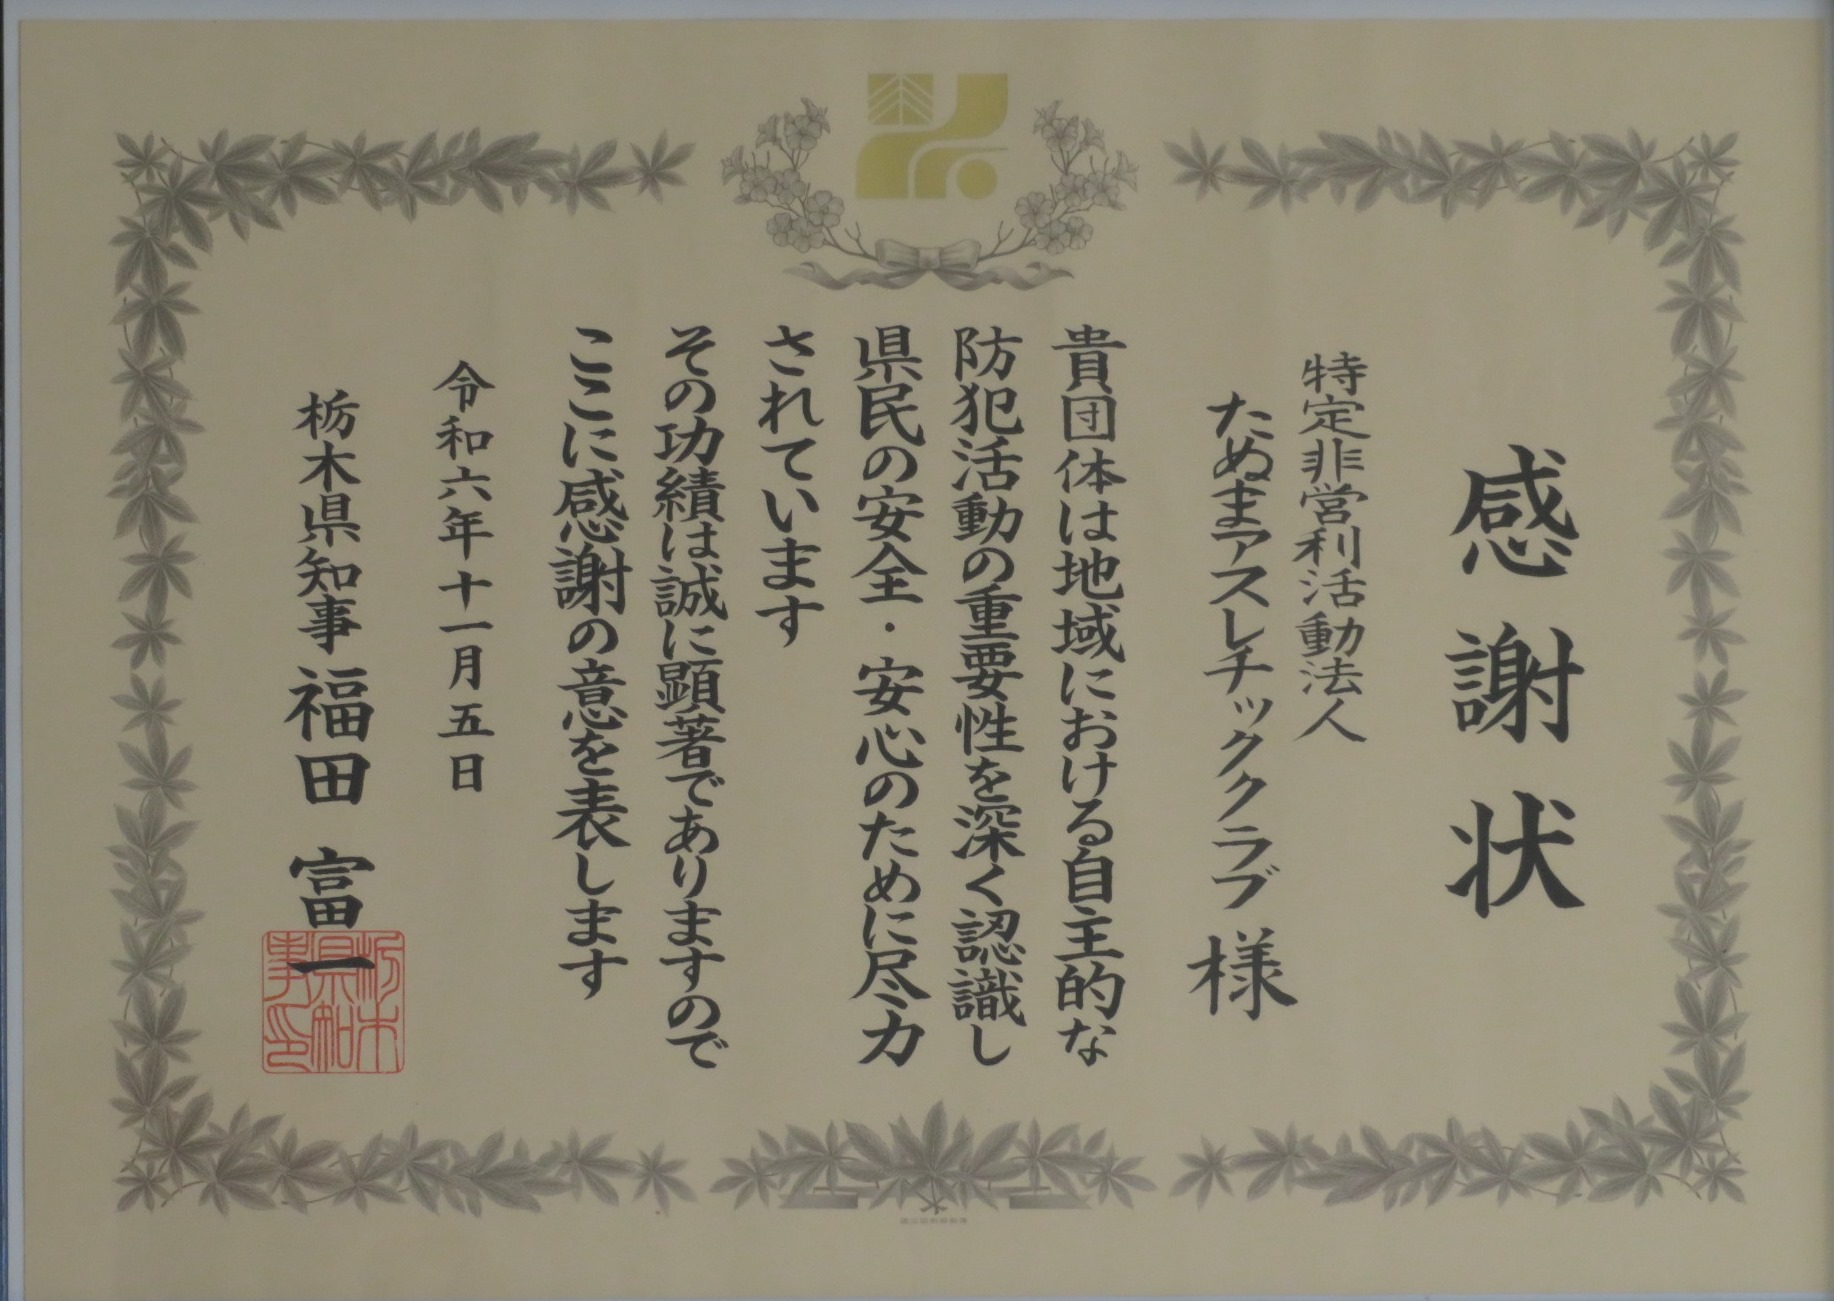 感謝状
特定非営利活動法人
たぬまアスレチッククラブ 様
貴団体は地域における自主的な
防犯活動の重要性を深く認識し
県民の安全・安心のために尽力
されています
その功績は誠に顕著でありますので
ここに感謝の意を表します
令和六年十一月五日
栃木県知事 福田 富一
栃木県知事印